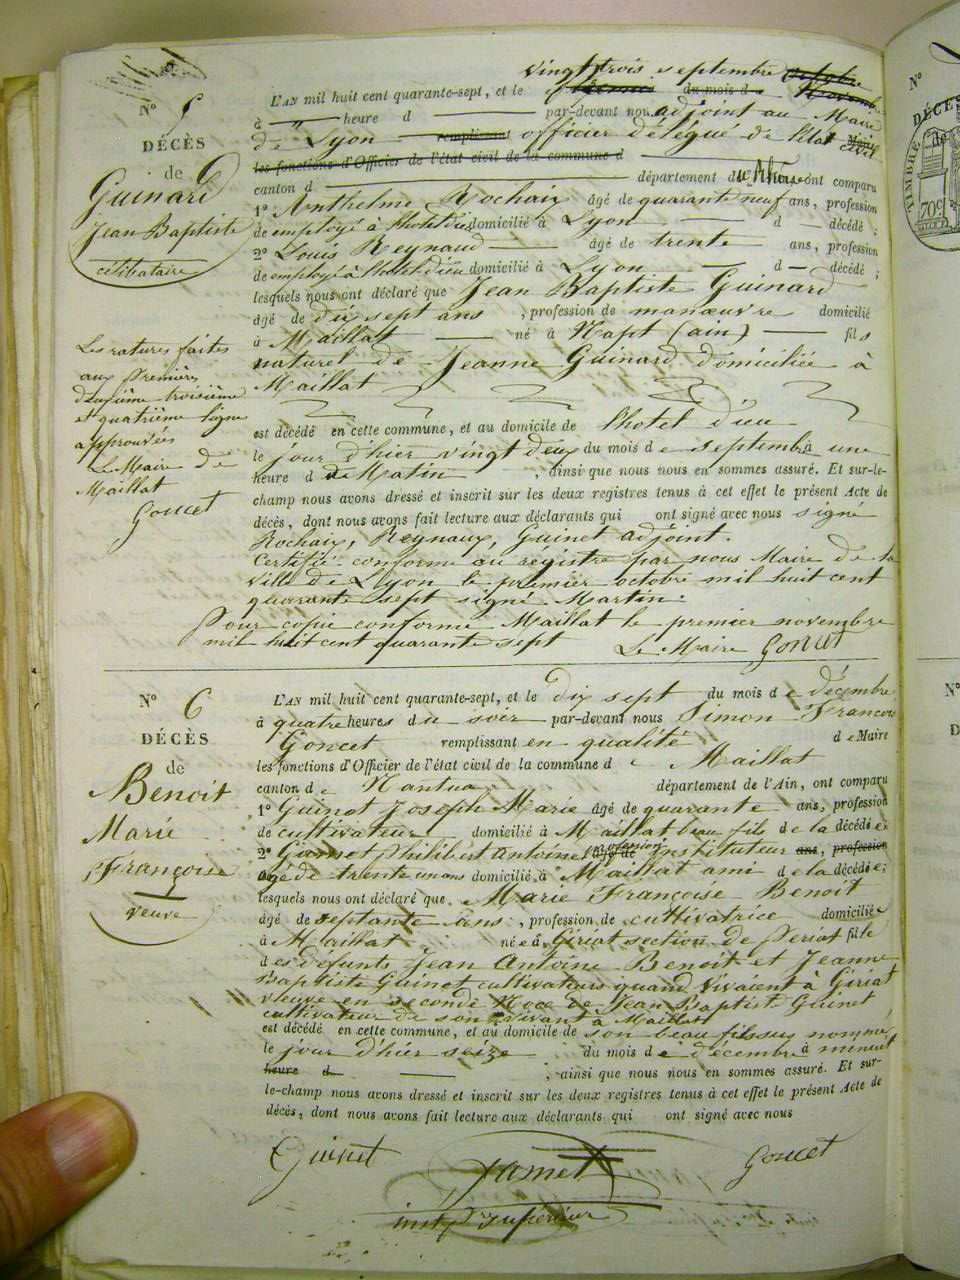 N° 5
DÉCÈS
de
Guinard
Jean Baptiste
célibataire
vingt trois septembre octobre
L'AN mil huit cent quarante-sept, et le premier du mois d e Novembre
à heure d par-devant nous adjoint au Maire
de Lyon remplissant officier délégué de l'état civil Maire
les fonctions d'Officier de l'état civil de la commune d
canton d département du Rhône ont comparu
1° Anthelme Rochaix âgé de quarante neuf ans, profession
de employé à l'hotel dieu domicilié à Lyon d décédé ;
2° Louis Reynaud âgé de trente ans, profession
de employé à l'hotel dieu domicilié à Lyon d décédé ;
lesquels nous ont déclaré que Jean Baptiste Guinard
âgé de dix sept ans , profession de manœuvre domicilié
à Maillat né à Napt (ain) fils
naturel de Jeanne Guinard domiciliée à
Maillat
est décédé en cette commune, et au domicile de l'hotel dieu
le jour d'hier vingt deux du mois d e septembre à une
heure d du Matin ; ainsi que nous nous en sommes assuré. Et sur-le-
champ nous avons dressé et inscrit sur les deux registres tenus à cet effet le présent Acte de
décès, dont nous avons fait lecture aux déclarants qui ont signé avec nous signé
Rochaix, Reynaux, Guinet adjoint.
Certifié conforme au régistre par nous Maire de la
ville de Lyon le premier octobre mil huit cent
quarante sept signé Martin.
Pour copie conforme Maillat le premier novembre
mil huit cent quarante sept Le Maire Goncet
Les ratures faites
aux Premières
deuxième troisième
et quatrième ligne
approuvées
Le Maire de
Maillat
Goncet
N° 6
DÉCÈS
de
Benoit
Marie
Françoise
veuve
L'AN mil huit cent quarante-sept, et le dix sept du mois d e décembre
à quatre heures du soir par-devant nous Simon François
Goncet remplissant en qualité d e Maire
les fonctions d'Officier de l'état civil de la commune d e Maillat
canton d e Nantua département de l'Ain, ont comparu
1° Guinet Joseph Marie âgé de quarante ans, profession
de cultivateur domicilié à Maillat beau fils d e la décédé e;
2° Philibert Antoine profession âgé de Instituteur ans, profession
âgé de trente un ans domicilié à Maillat ami d e la décédé e;
lesquels nous ont déclaré que Marie Françoise Benoit
âgé de septante ans , profession de cultivatrice domiciliée
à Maillat née à Giriat section de Peria fille
des défunts Jean Antoine Benoit et Jeanne
Baptiste Guinet cultivateurs quand vivaient à Giriat
veuve en seconde Noce de Jean Baptiste Guinet
cultivateur de son vivant à Maillat
est décédé en cette commune, et au domicile de son beau fils sus nommé
le jour d'hier seize du mois d e décembre à minuit
heure d ; ainsi que nous nous en sommes assuré. Et sur-
le-champ nous avons dressé et inscrit sur les deux registres tenus à cet effet le présent Acte de
décès, dont nous avons fait lecture aux déclarants qui ont signé avec nous
Guinet Goncet
supérieur
N°
DÉCÈS
TIMBRE
70c
N°
D